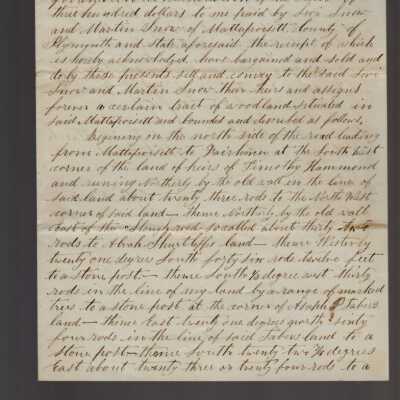 three hundred dollars to me paid by Levi Snow
and Martin Snow of Mattapoisett County of
Plymouth and State aforesaid the receipt of which
is hereby acknowledged, have bargained and sold and
do by these presents sell and convey to the said Levi
Snow and Martin Snow their heirs and assigns
forever a certain tract of woodland situated in
said Mattapoisett and bounded and described as follows.
Begining on the north side of the road leading
from Mattapoisett to Fairhaven at the South West
corner of the land of heirs of Timothy Hammond
and runing Northerly by the old wall in the line of
said land about twenty three rods to the North West
corner of said land — thence Northerly by the old wall
East of the road so called about thirty two
rods to Abiah Shurtleffs land — thence Westerly
twenty one degrees South forty six rods twelve feet
to a stone post — thence South ½ degree west thirty
rods in the line of my land by a range of marked
trees to a stone post at the corner of Asaph P Tabers
land — thence East twenty one degrees north sixty
four rods in the line of said Tabers land to a
stone post — thence South twenty two ½ degrees
East about twenty three or twenty four rods to a